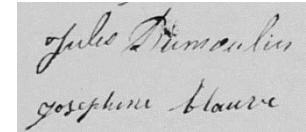 Jules Dumoulin
Josephine Mauve